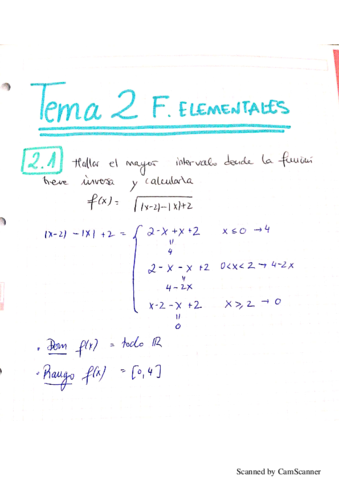 Tema 2 F. ELEMENTALES
2.1 Hallar el mayor intervalo donde la función
tiene inversa y calcularla
f(x) = √(|x-2|-|x|+2)
|x-2| - |x| + 2 = { 2-x+x+2 x≤0 → 4
"
4
2-x-x+2 0<x<2 → 4-2x
"
4-2x
x-2-x+2 x≥2 → 0
"
0
• Dom f(x) = todo ℝ
• Rango f(x) = [0,4]
Scanned by CamScanner